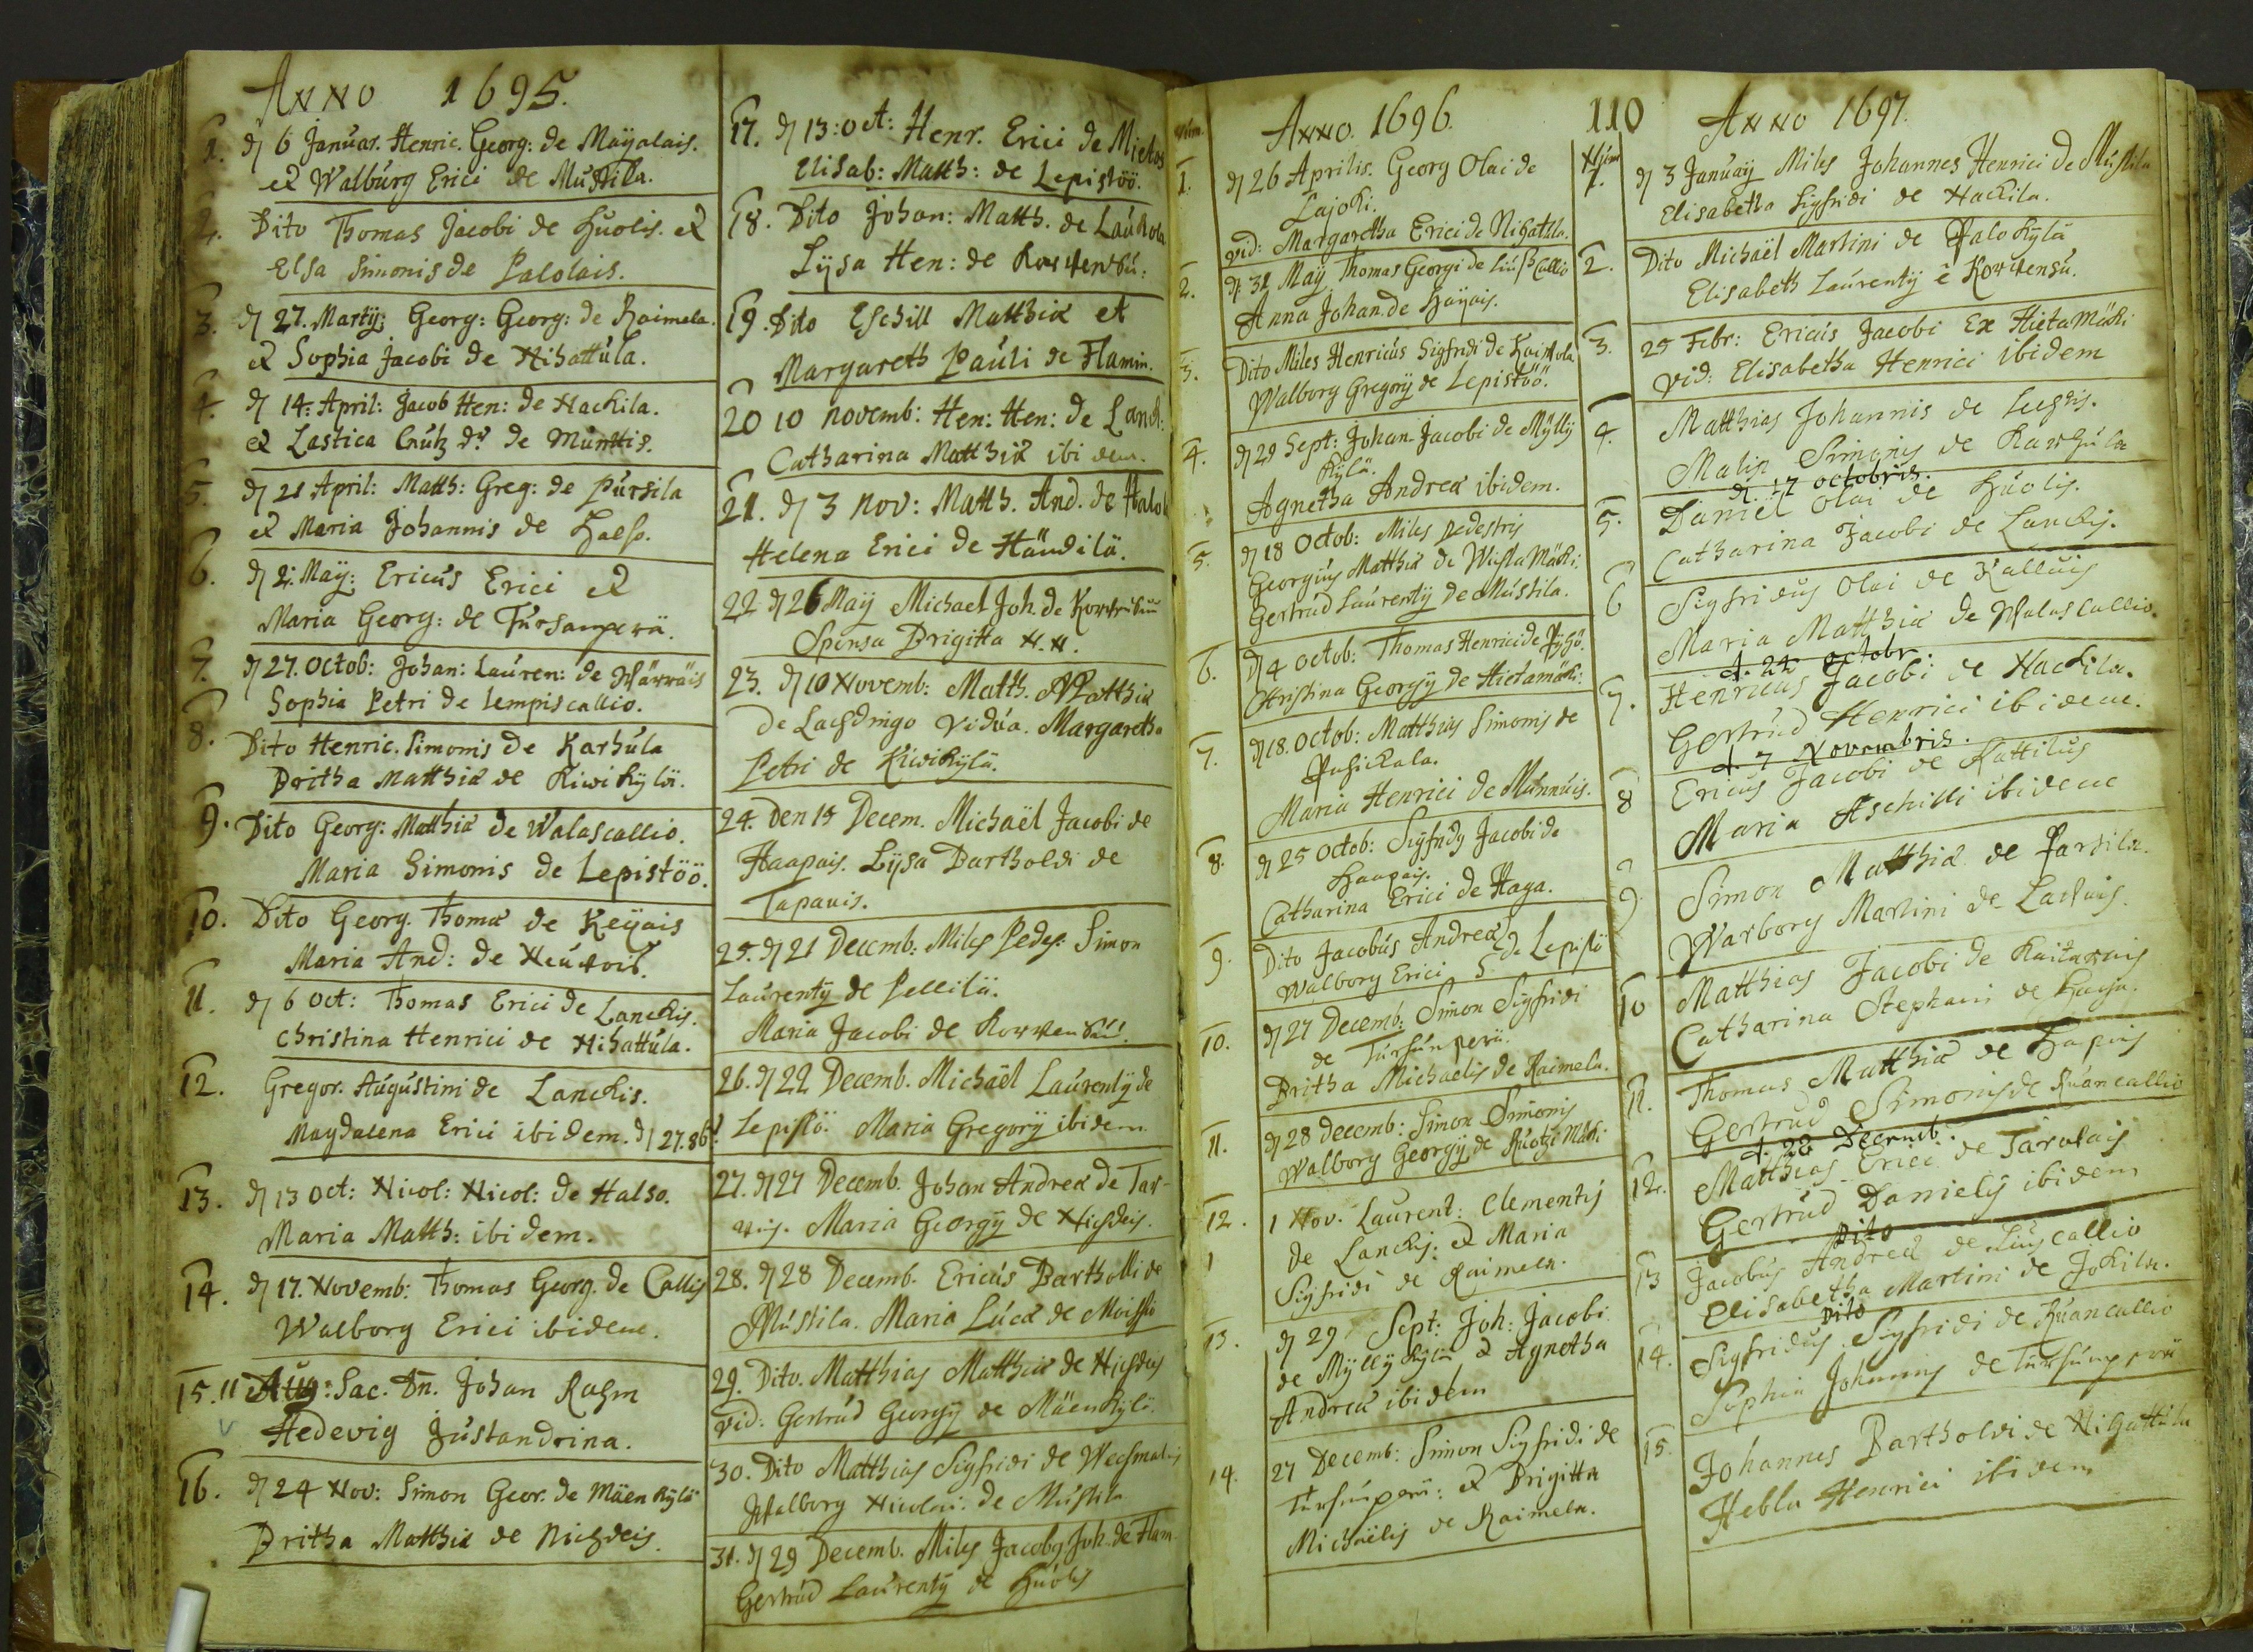 Anno 1695.
1. d 6 Januar. Henric. Georg: de Mayalais.
et Walburg Erici de Mustila.
2. Dito Thomas Jacobi de Huolis. et
Elsa Simonis de Palolais.
3. d 27. Martij: Georg: Georg: de Raimela.
et Sophia Jacobi de Nihattula.
4. d 14: April: Jacob Hen: de Nackila.
et Lastica de Munttis.
5. d 21 April: Matth: Greg: de Pursila
et Maria Johannis de Halso.
6. d 2. Maij: Ericus Erici et
Maria Georg: de Tursamperä.
7. d 27. Octob: Johan: Lauren: de Wärräis
Sophia Petri de Lempiscallio.
8. Dito Henric. Simonis de Karhula
Britha Matthiæ de Kiwikylä.
9. Dito Georg: Matthiæ de Walascallio.
Maria Simonis de Lepistöö.
10. Dito Georg. Thomæ de Keijais
Maria And: de
11. d 6 Oct: Thomas Erici de Lanckis.
Christina Henrici de Nihattula.
12. Gregor. Augustini de Lanckis.
Magdalena Erici ibidem. d 27. 8br.
13. d 13 Oct: Nicol: Nicol: de Halso.
Maria Matth: ibidem.
14. d 17. Novemb: Thomas Georg. de Callis
Walborg Erici ibidem.
15. 11 Aug: Sac. Dn. Johan Rahm
Hedevig Justandrina.
16. d 24 Nov: Simon Geor. de Mäenkylä
Britha Matthiæ de Nichdeis.
17. d 13: Oct: Henr. Erici de Mietois
Elisab: Matth: de Lepistöö.
18. Dito Johan: Matth. de Laukola
Lijsa Hen: de Korvensu:
19. Dito Eschill Matthiæ et
Margareth Pauli de Flamin.
20 10 Novemb: Hen: Hen: de Lanck:
Catharina Matthiæ ibidem.
21. d 3 Nov: Matth. And. de Palok
Helena Erici de Händilä.
22 d 26 Maij Michael Joh. de Korvensuu
Sponsa Brigitta N.N.
23. d 10 Novemb: Matth. Matthiæ
de Lachdingo vidua. Margaretha
Petri de Kiwikylä.
24. Den 15 Decem. Michaël Jacobi de
Haapais. Lijsa Bartholdi de
Tapanis.
25. d 21 Decemb: Miles Pedes: Simon
Laurentij de Pellilä.
Maria Jacobi de Korvensuu.
26. d 22 Decemb. Michaël Laurentij de
Lepistö. Maria Gregorij ibidem.
27. d 27 Decemb. Johan Andreæ de Tar-
vais. Maria Georgij de Nichdeis.
28. d 28 Decemb. Ericus Bartholli de
Mustila. Maria Lucæ de Moisio
29. Dito. Matthias Matthiæ de Nichdeis
vid: Gertrud Georgij de Mäenkylä.
30. Dito Matthias Sigfridi de Wechmalis
Walborg Nicolai: de Mustila
31. d 29 Decemb. Miles Jacobg Joh. de Flam.
Gertrud Laurentij de Huolis
Num. Anno. 1696. 110
1. d 26 Aprilis. Georg Olai de
Lajoki.
vid: Margaretha Erici de Nihattla.
2. d. 31 Maij Thomas Georgi de Liuscallio
Anna Johan. de Haijais.
3. Dito Miles Henricus Sigfridi de Kaistola
Walborg Gregorij de Lepistöö.
4. d 29 Sept: Johan. Jacobi de Mylly
Kylä.
Agnetha Andreæ ibidem.
5. d 18 Octob: Miles pedestris
Georgius Matthiæ de WiistaMäcki:
Gertrud Laurentij de Mustila.
6. d 4 Octob: Thomas Henrici de Pyhö.
Christina Georgij de Hietamäki:
7. d 18. Octob: Matthias Simonis de
Puhickala.
Maria Henrici de Munnuis.
8. d 25 Octob: Sigfridg Jacobi de
Haapais.
Catharina Erici de Haga.
9. Dito Jacobus Andreæ
Walborg Erici de Lepistö
10. d 27 Decemb: Simon Sigfridi
de Tursunperä.
Britha Michaelis de Raimela.
11. d 28 Decemb: Simon Simonis
Walborg Georgij de Ruotzi Mäki.
12. 1 Nov. Laurent: Clementis
de Lanckis: et Maria
Sigfridi de Raimela.
13. d 29 Sept: Joh: Jacobi
de Myllykylä et Agnetha
Andreæ ibidem
14. 27 Decemb: Simon Sigfridi de
Tursunperä: et Brigitta
Michaëlis de Raimela.
Anno 1697.
Num
1. d 3 Januarij Miles Johannes Henrici de Mustila
Elisabetha Sigfridi de Nackila.
2. Dito Michaël Martini de Palokylä
Elisabeth Laurentij è Korvensu.
3. 25 Febr: Ericus Jacobi Ex HietaMäcki
vid: Elisabetha Henrici ibidem
4. Matthias Johannis de
Malin Simonis de Karhula
d. 17 Octobris.
5. Daniel Olai de Huolis.
Catharina Jacobi de Lanckis.
6 Sigfridus Olai de Kalluis
Maria Matthiæ de Walascallio.
d. 24 Octobr.
7. Henricus Jacobi de Nackila.
Gertrud Henrici ibidem.
d. 7 Novembris.
8 Ericus Jacobi de Kattilus
Maria Aschilli ibidem
9. Simon Matthiæ de Parsila.
Warborg Martini de
10 Matthias Jacobi de Kaitarais
Catharina Stephani de Haga.
11. Thomas Matthiæ de Hapais
Gertrud Simonis de Ruancallio
d. 28 Decemb.
12. Matthias Erici de Tarvais
Gertrud Danielis ibidem
Dito
13 Jacobus Andreæ de Liuscallio
Elisabetha Martini de Jokila.
Dito
14. Sigfridus Sigfridi de Ruancallio
Sophia Johannis de Tursunperä
15. Johannes Bartholdi de Nihattula
Hebla Henrici ibidem